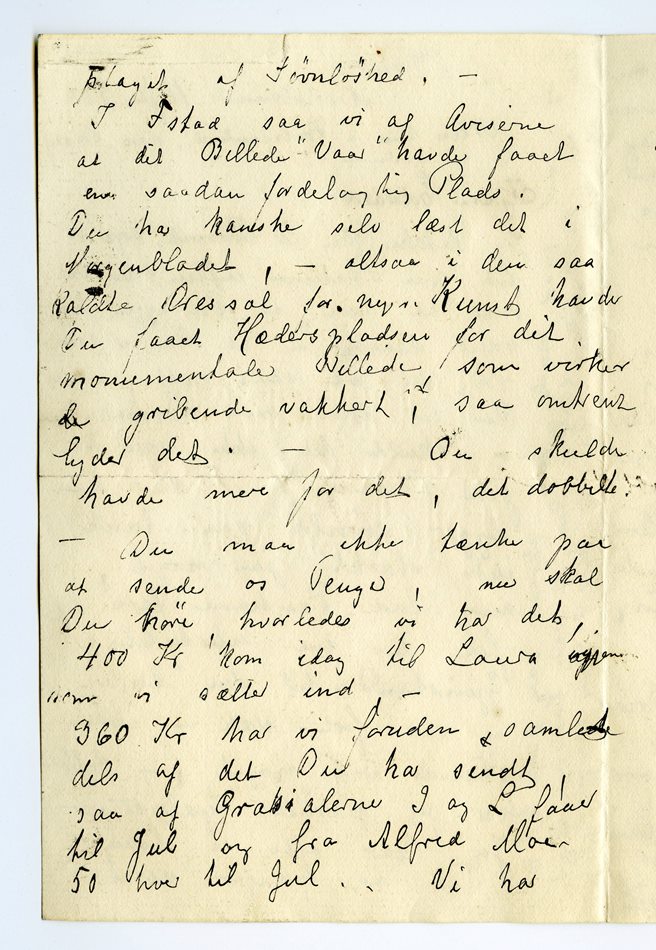 plaget af Sövnlöshed. –
I Fstad saa vi af Aviserne
at dit Billede "Vaar" havde faaet
en saadan fordelagtig Plads.
Du har kanske selv læst det i
Morgenbladet, – altsaa i den saa
kaldte Æressal for nyn Kunst havde
Du faaet Hæderspladsen for dit
monumentale Billede, som virker
gribende vakkert", saa omtrent
lyder det. – Du skulde
havde mere for det, det dobbelte.
– Du maa ikke tænke paa
at sende os Penge, nu skal
Du høre, hvorledes vi har det,
400 Kr kom idag til Laura
som vi sætter ind, –
360 Kr har vi foruden, samlede
dels af det Du har sendt,
saa af Gratialerne I og L faaer
til Jul og fra Alfred Moe
50 hver til Jul. . Vi har